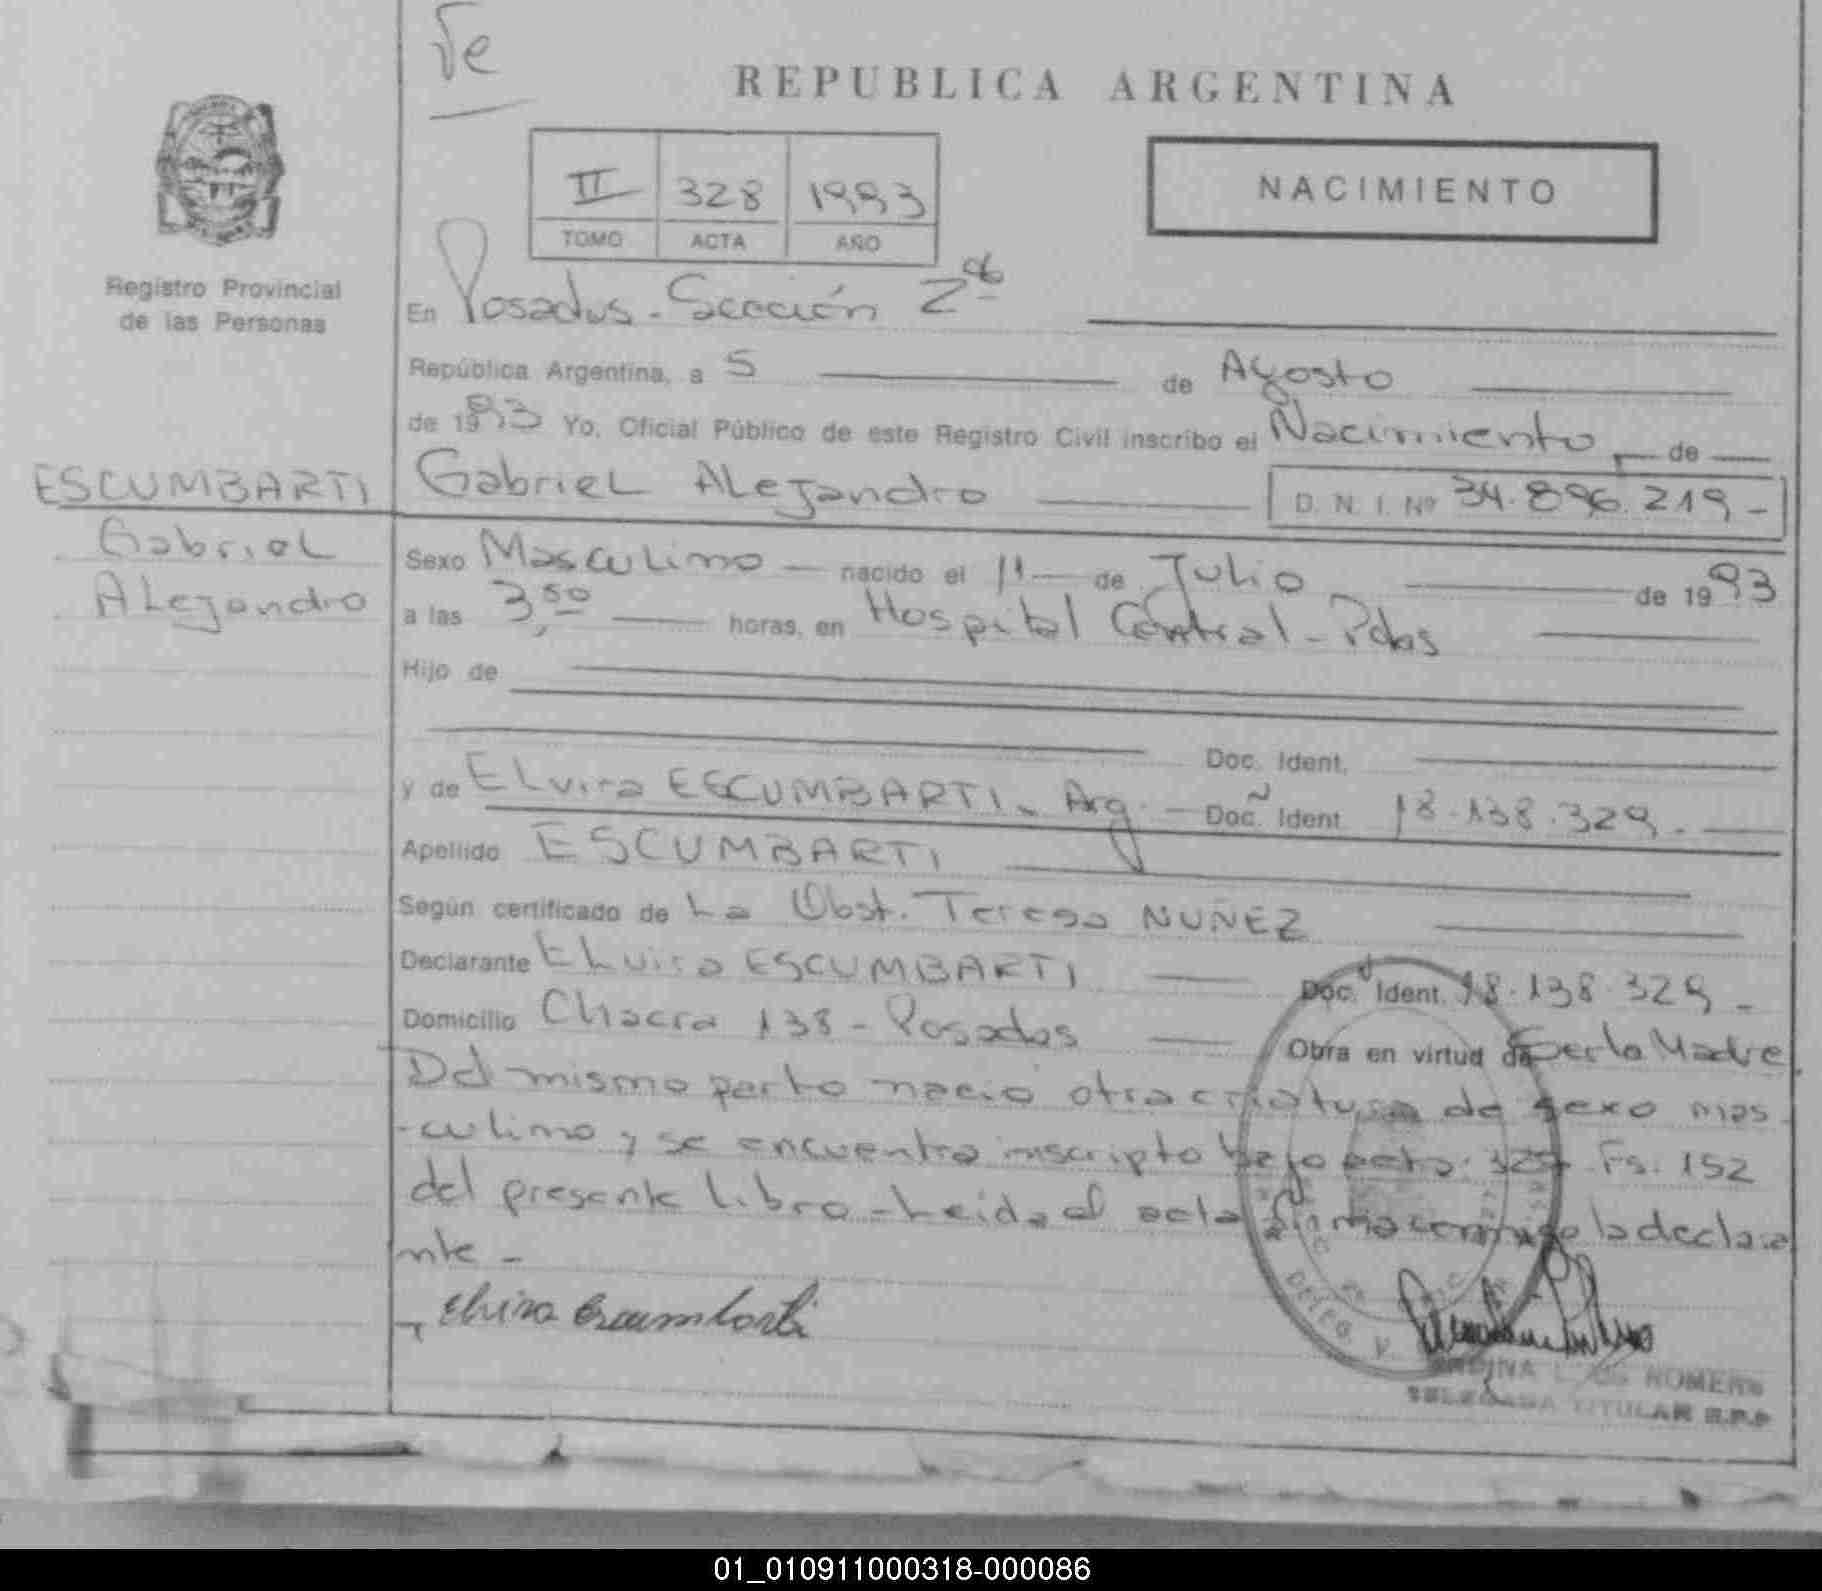 Ve
REPUBLICA ARGENTINA
II 328 1993
TOMO ACTA AÑO
NACIMIENTO
Registro Provincial
de las Personas
En Posadas - Sección 2da
República Argentina, a 5 de Agosto
de 1993 Yo, Oficial Público de este Registro Civil inscribo el Nacimiento, de
ESCUMBARTI
Gabriel
Alejandro
Gabriel Alejandro D. N. I. Nº 34.896.219 -
Sexo Masculino nacido el 11 de Julio de 1993
a las 3,50 horas, en Hospital Central - Pdas
Hijo de
Doc. Ident.
y de Elvira ESCUMBARTI - Arg. - Doc. Ident. 18.138.329 -
Apellido ESCUMBARTI
Según certificado de La Obst. Teresa NUÑEZ
Declarante Elvira ESCUMBARTI Doc. Ident. 18.138.329 -
Domicilio Chacra 138 - Posadas Obra en virtud de Ser la Madre
Del mismo parto nació otra criatura de sexo mas
-culino y se encuentra inscripto bajo acta: Fs. 152
del presente Libro - Leida el acta firma conmigo la declara
nte -
Elvira Escumbarti
ROMERO
TITULAR R.P.P
01_010911000318-000086